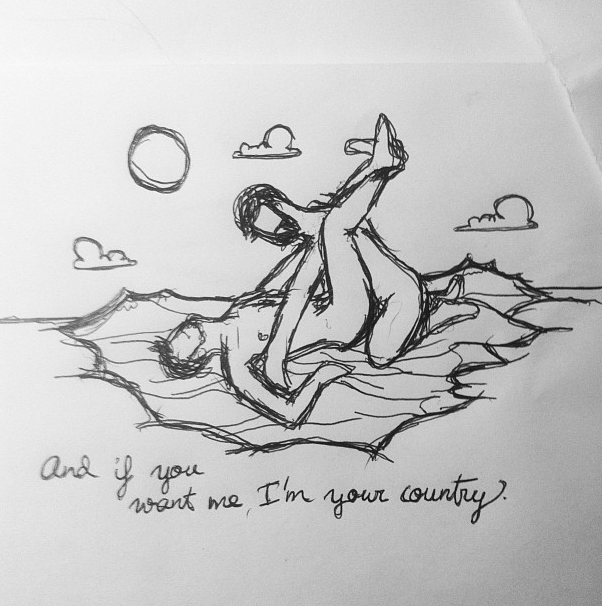 And if you
want me, I'm your country?